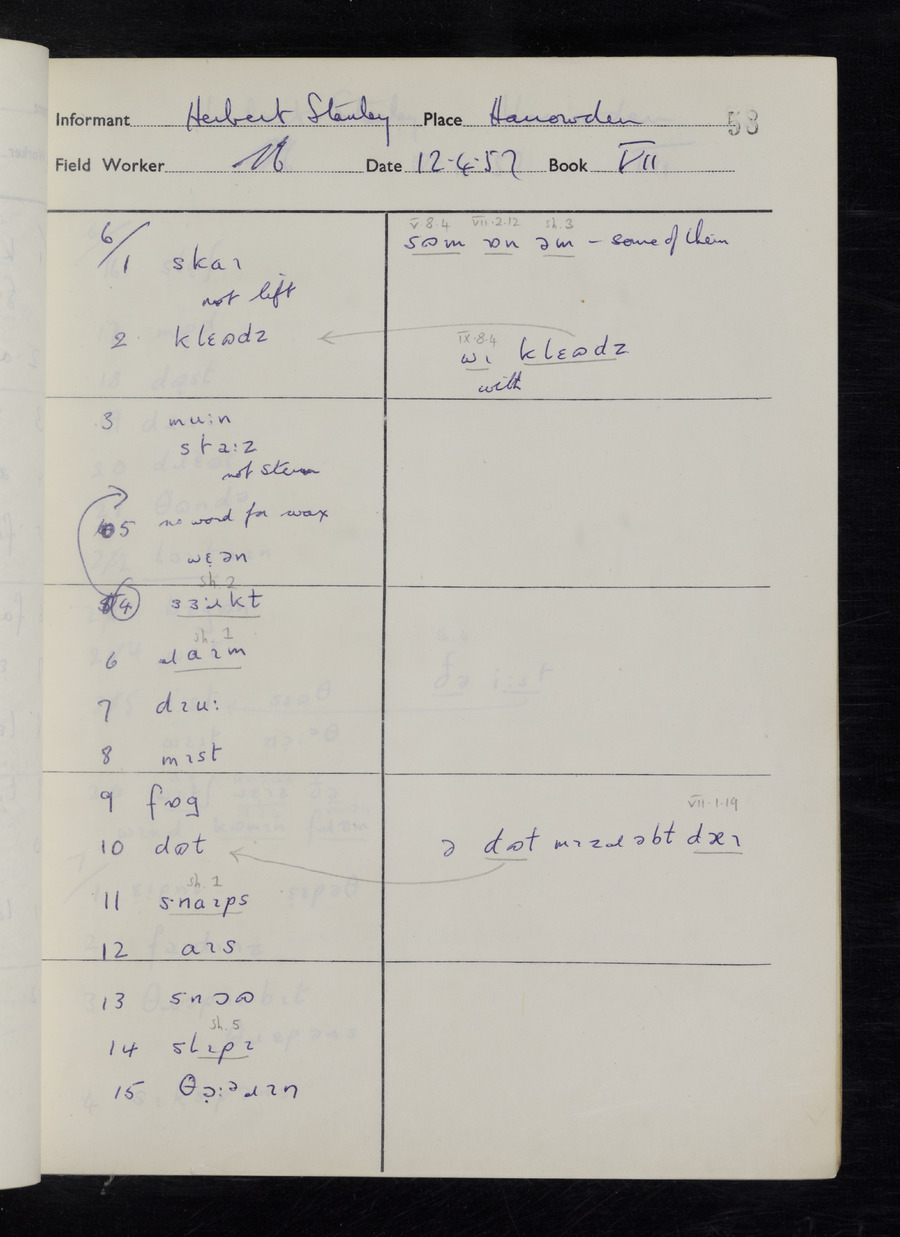 Informant Herbert Stanley Place Harrowden 53
Field Worker Date 12·4·57 Book VII
6/1 skaɪ
not lift
2 klɛʊdz
3 muːn
staːz
not stern
5 no word for wax
wɛən
4
sh. 2
sh. 1
6 wɑɪm
7 dɹuː
8 mɪst
9 fɒg
10 dʊt
sh. 1
11 snaɪps
12 aɪs
13 snɔʊ
sh. 5
14 slɪpɪ
15 θɔːəɹɪn
V.8.4 VII.2.12 sh.3
sʊm ɒn əm – some of them
IX.8.4
wɪ klɛʊdz
with
VII.1.19